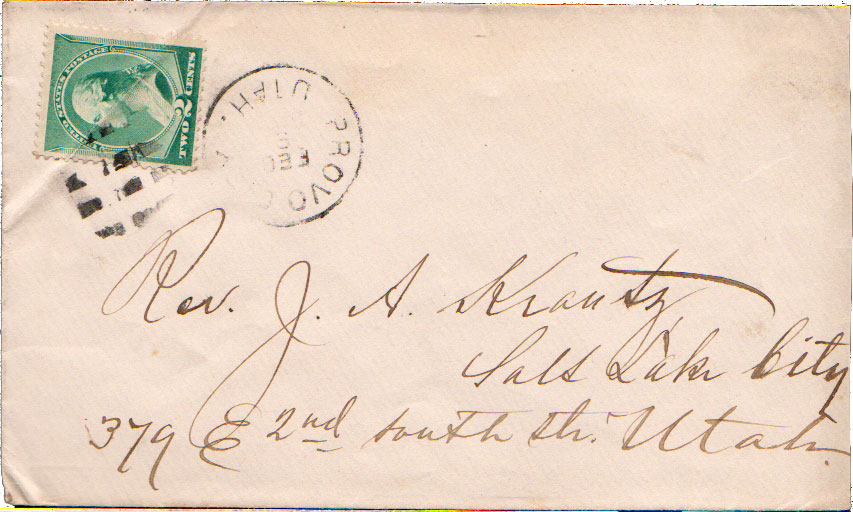 UNITED STATES POSTAGE
TWO 2 CENTS
PROVO C
UTAH.
DEC
Rev. J. A. Krantz
Salt Lake City
379 E 2nd south str. Utah.